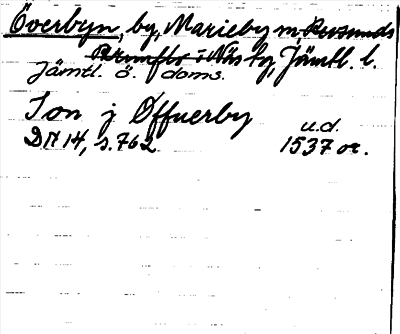 Överbyn, by, Marieby sn, Rusunds
Brunflo i Näs tg, Jämtl. l.
Jämtl. ö. doms.
Ion j Øffuerby
u.d.
DN 14, s. 762 1537 or.